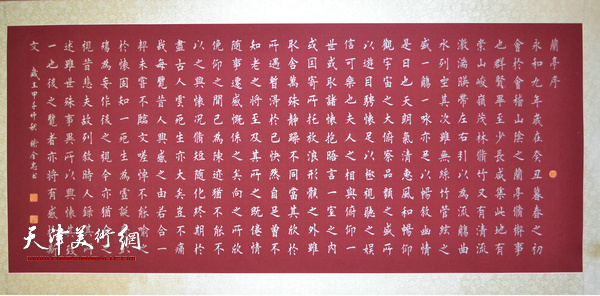 蘭亭序
永和九年歲在癸丑暮春之初
會於會稽山陰之蘭亭脩禊事
也群賢畢至少長咸集此地有
崇山峻嶺茂林脩竹又有清流
激湍暎帶左右引以為流觴曲
水列坐其次雖無絲竹管絃之
盛一觴一詠亦足以暢敘幽情
是日也天朗氣清惠風和暢仰
觀宇宙之大俯察品類之盛所
以遊目騁懷足以極視聽之娛
信可樂也夫人之相與俯仰一
世或取諸懷抱晤言一室之內
或因寄所托放浪形骸之外雖
取舍萬殊靜躁不同當其欣於
所遇暫得於己快然自足曾不
知老之將至及其所之既倦情
隨事遷感慨係之矣向之所欣
俛仰之間已為陳迹猶不能不
以之興懷況脩短隨化終期於
盡古人云死生亦大矣豈不痛
哉每覽昔人興感之由若合一
契未嘗不臨文嗟悼不能喻之
於懷固知一死生為虛誕
殤為妄作後之視今亦由
視昔悲夫故列敘時人錄其
述雖世殊事異所以興懷
一也後之覽者亦將有感
文 歲
天津美術網